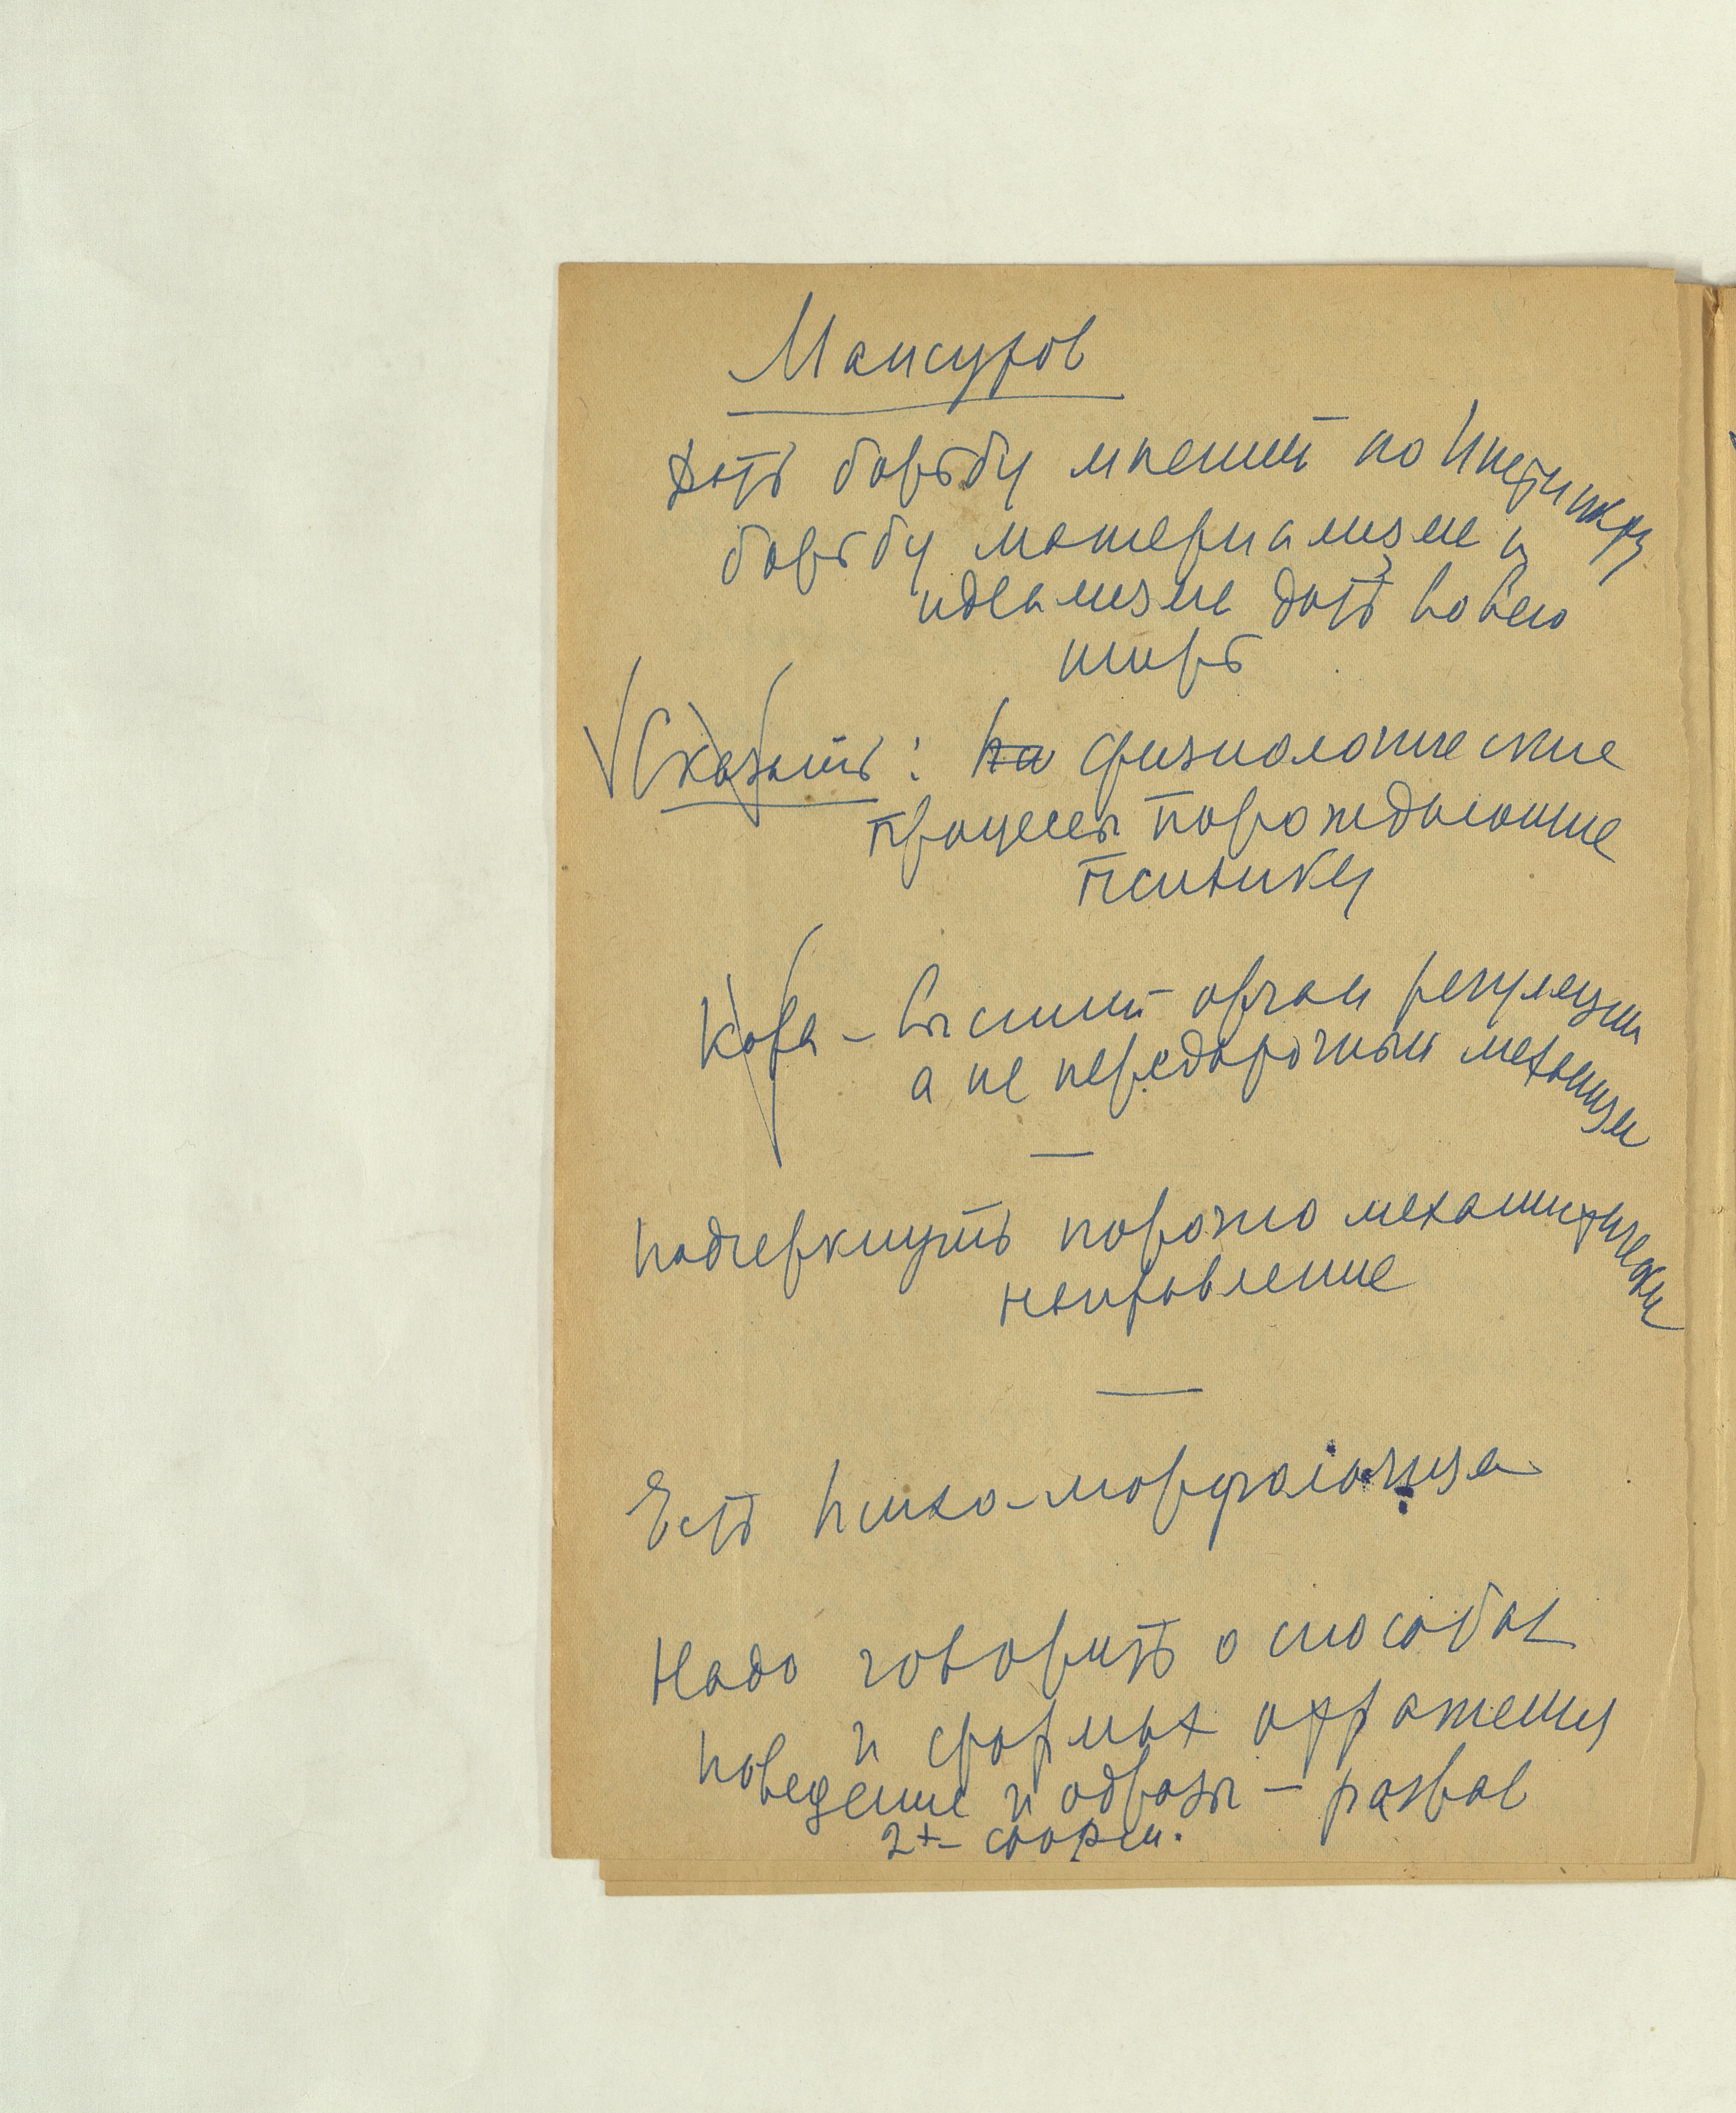 Мансуров
Дать борьбу мнений по Инстинкту
борьбу материализма и
идеализма дать во всю
ширь
Сказать: на физиологические
процессы порождающие
психику
Кора – высший орган регуляции
а не передаточный механизм
—
Подчеркнуть порочно механистическ
направление
—
Есть психо-морфологизм
Надо говорить о способах
и формах отражения
поведение и образы – разрыв
2